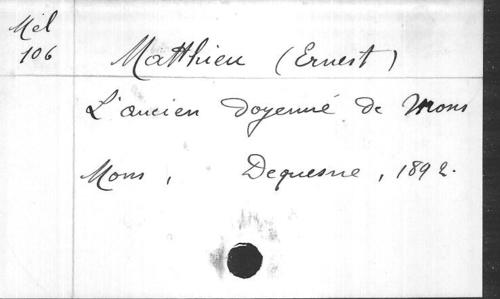 Mél
106
Matthieu (Ernest)
L'ancien Doyenné de Mons
Mons, Dequesne, 1892.